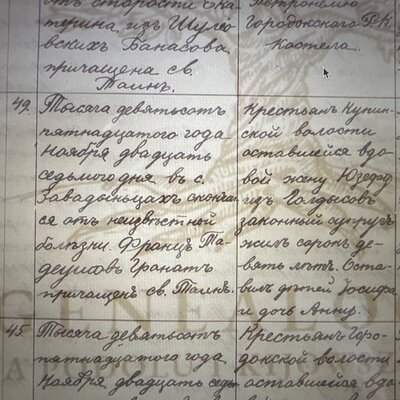 отъ старости Ека-
терина изъ Шуто-
вскихъ Банасова
причащена св.
Таинъ.
Петронелю
Городокскаго Р. К.
Костела.
49.
Тысяча девятьсотъ
пятнадцатого года
Ноября двадцать
седьмого дня въ с.
Завадыньцахъ сконча-
ся отъ неизвѣстной
болѣзни Францъ Та-
деушовъ Гранатъ
причащенъ св. Таинъ.
Крестьянъ Купин-
ской волости
оставшейся вдо-
вой жену Юзефу
изъ Голдысовъ
законный супругъ
жилъ сорокъ де-
вять лѣтъ. Оста-
вилъ дѣтей Іосифа
и дочь Анну.
45.
Тысяча девятьсотъ
пятнадцатого года
Ноября двадцать седь
Крестьянъ Горо-
докской волости
оставшейся вдо
GENEALO